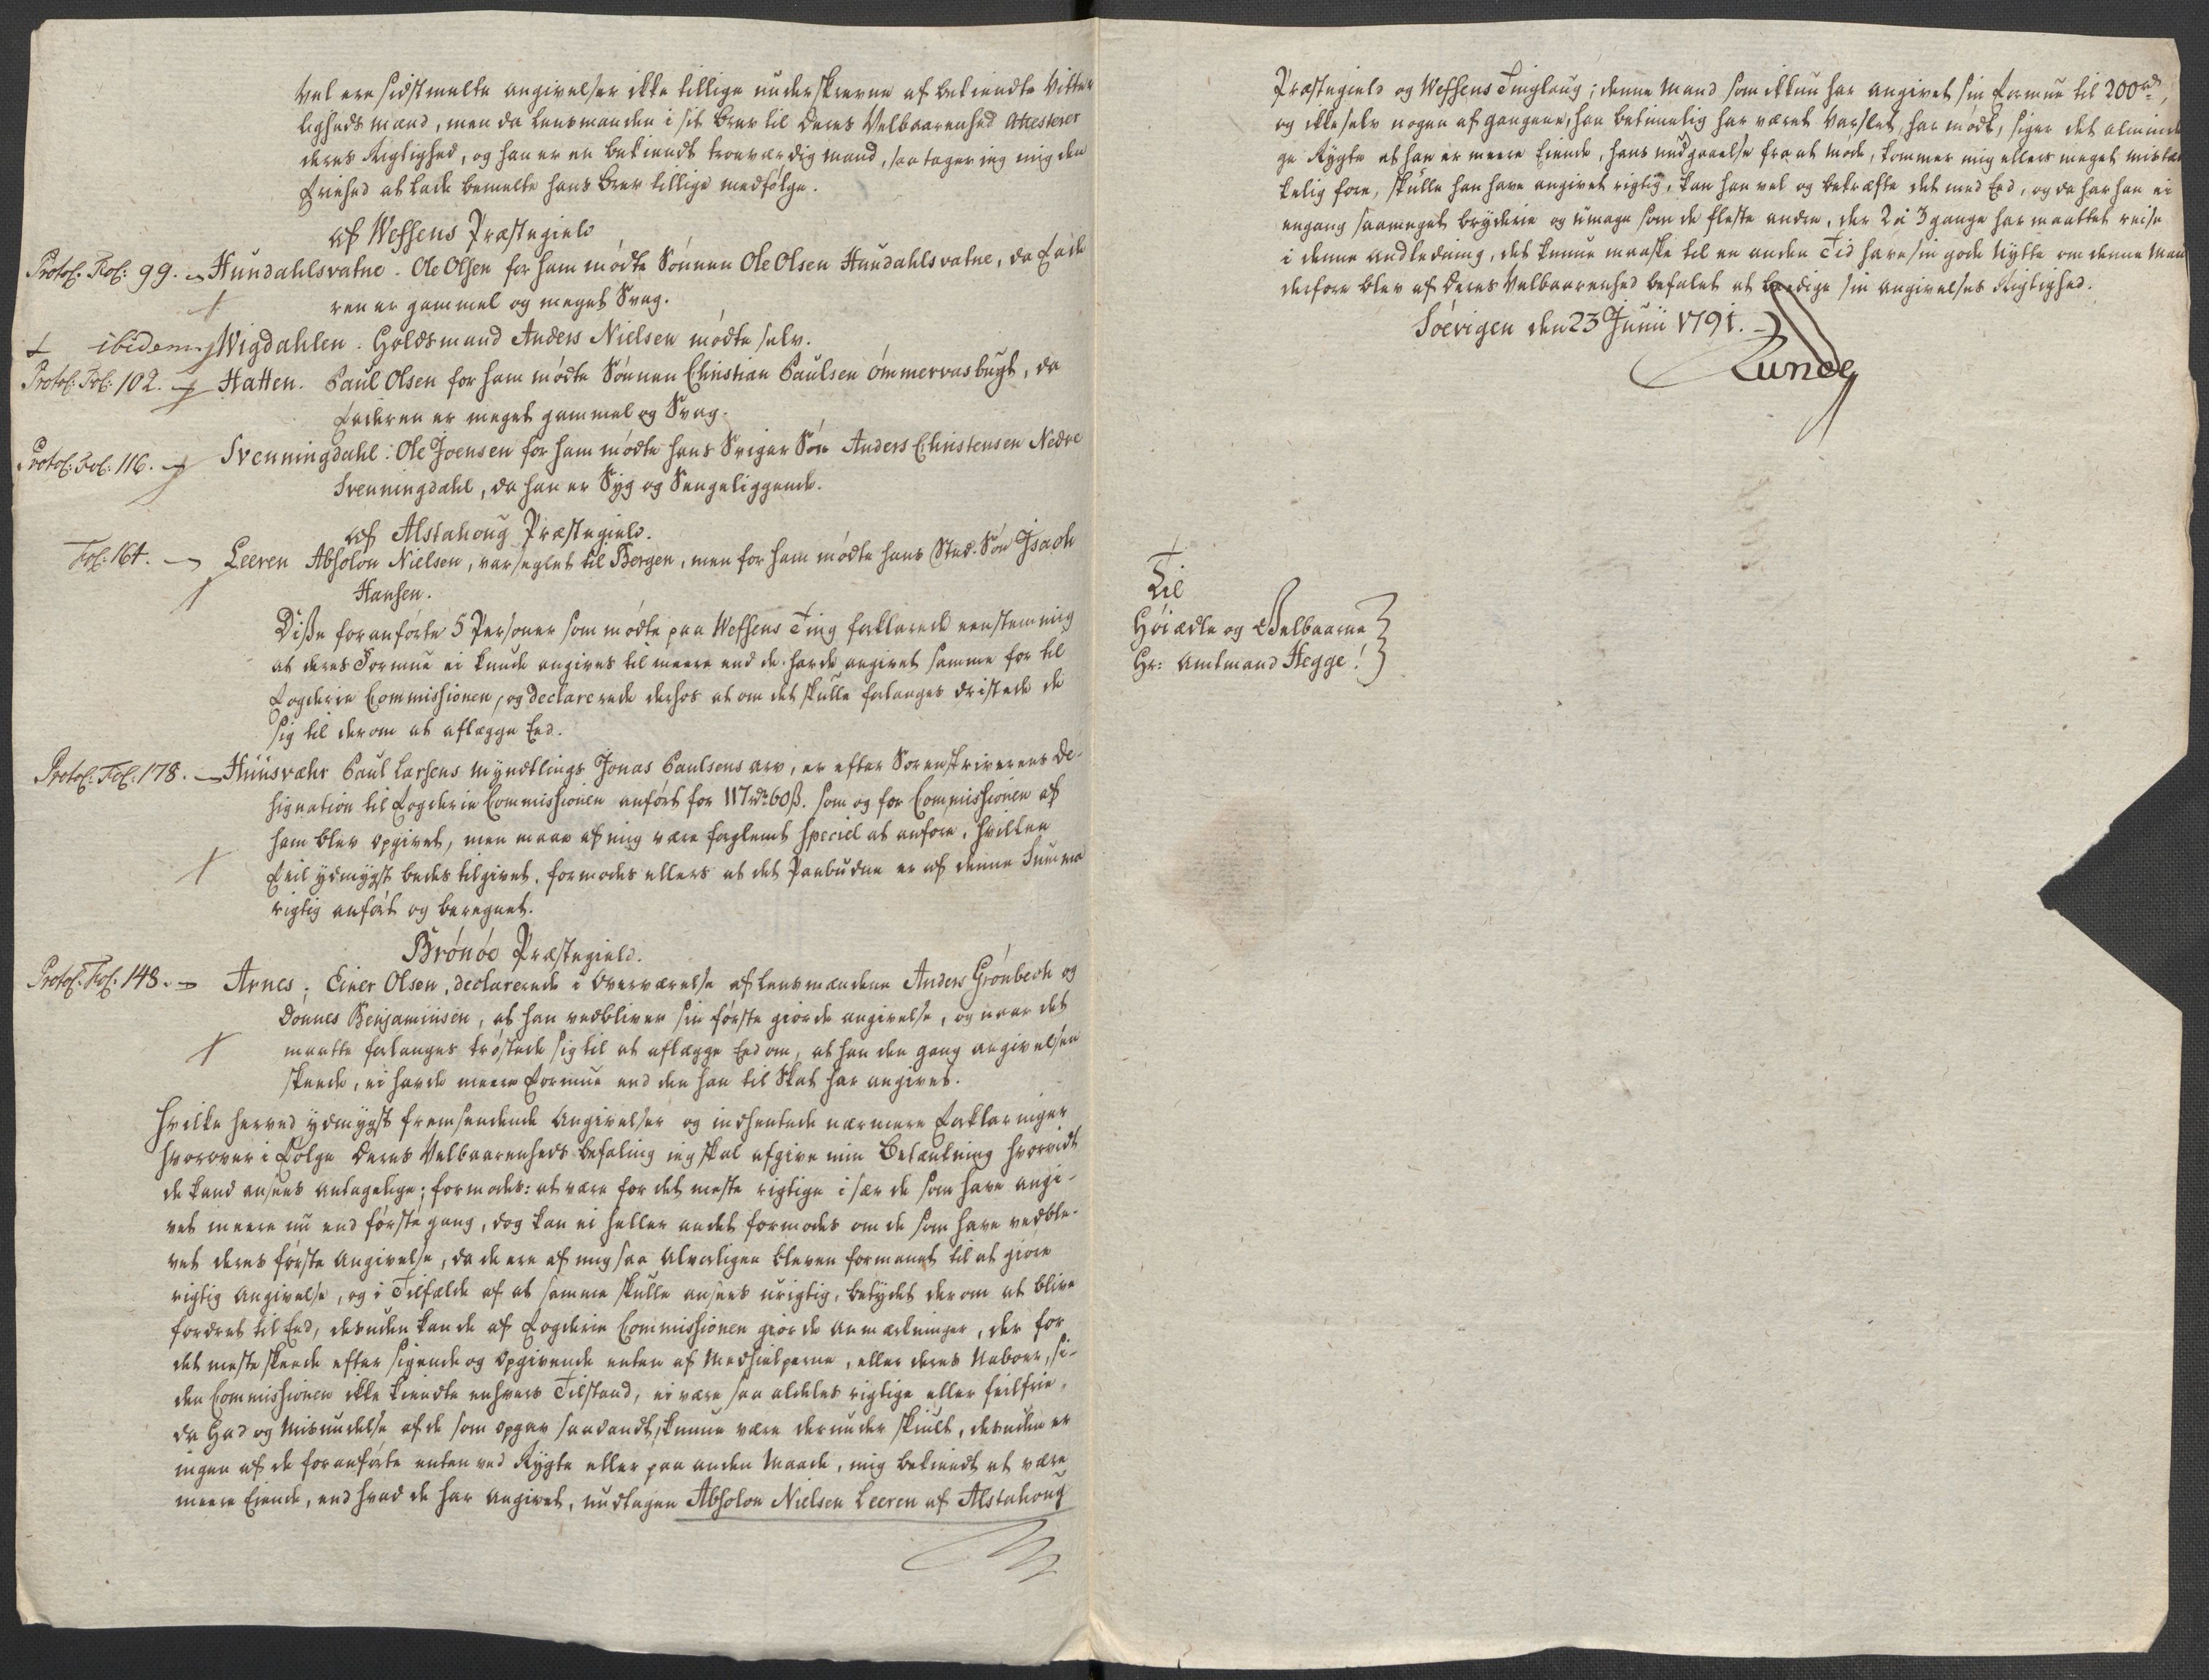 Vel ere sidstmelte angivelser ikke tillige underskrevne af bekiendte Vitter
ligheds mænd, men da lensmanden i sit brev til Deres Velbaarenhed Attesterer
deres Rigtighed, og han er en bekiendt troeværdig mand, saa tager ieg mig den
Friehed at lade bemelte hans brev tillige medfølge.
af Wefsens Præstegield
Protol: Fol: 99. Hundahlsvatne. Ole Olsen for ham mødte Sønnen Ole Olsen Hundahlsvatne, da Fade
ren er gammel og meget Svag.
ibidem. Wigdahlen. Holdsmand Anders Nielsen mødte selv.
Protol: Fol: 102. Hatten. Paul Olsen for ham mødte Sønnen Christian Paulsen ømmervasbugt, da
Faderen er meget gammel og Svag.
Protol: Fol: 116. Svenningdahl: Ole Joensen for ham mødte hans Sviger Søn Anders Christensen Nedre
Svenningdahl, da han er Syg og Sengeliggende.
af Alstahoug Præstegield.
Fol: 164. Leeren Absolon Nielsen, var seglet til Bergen, men for ham mødte hans Sted-Søn Isach
Hansen.
Disse foranførte 5 Personer som mødte paa Wefsens Ting forklarede eenstemmig
at deres Formue ei kunde angives til meere end de havde angivet samme for til
Fogderie Commissionen, og declarerede derhos at om det skulle forlanges dristede de
sig til derom at aflægge Eed.
Protol: Fol: 178. Huusvæhr Paul Larsens Myndtlings Jonas Paulsens arv, er efter Sorenskriverens De-
signation til Fogderie Commissionen anført for 117 rdr 60 ß. som og for Commissionen af
ham blev opgivet, men maae af mig være forglemt speciel at anføre, hvilken
Feil ydmygst bedes tilgivet, formodes ellers at det Paabudne er af denne Summa
rigtig anført og beregnet.
Brønøe Præstegield.
Protol: Fol: 148. Arnes; Einer Olsen, declarerede i Overværelse af lensmændene Anders Grønbech og
Donnes Benjaminsen, at han vedbliver sin første giorde angivelse, og naar det
maatte forlanges trøstede sig til at aflægge Eed om, at han den gang angivelsen
skeede, ei havde meere Formue end den han til Skat har angivet.
Hvilke herved ydmygst fremsendende Angivelser og indhentede nærmere Forklaringer
hvorover i Følge Deres Velbaarenheds befaling ieg skal afgive min Betænkning hvorvidt
de kand ansees antagelige; formodes: at være for det meste rigtige i sær de som have angi-
vet meere nu end første gang, dog kan ei heller andet formodes om de som have vedble-
vet deres første Angivelse, da de ere af mig saa alvorligen bleven formanet til at giøre
rigtig Angivelse, og i Tilfælde af at samme skulle ansees urigtig, betydet derom at blive
fordret til Eed, desuden kan de af Fogderie Commissionen giorde anmærkninger, der for
det meste skeede efter sigende og opgivende enten af Medhielperne, eller deres Naboer, si-
den Commissionen ikke kiendte enhvers Tilstand, ei være saa aldeles rigtige eller feilfrie,
da Had og Misundelse af de som opgav saadandt, kunne være derunder skiult, desuden er
ingen af de foranførte enten ved Rygte eller paa anden Maade, mig bekiendt at være
meere Eiende, end hvad de har angivet, undtagen Absolon Nielsen Leeren af Alstahoug
Præstegield og Wefsens Tinglaug; denne Mand som ikkun har angivet sin Formue til 200 rdr,
og ikke selv nogen af gangene, han betimelig har været Varslet, har mødt, siger det alminde
ge Rygte at han er meere Eiende, hans undgaaelse fra at møde, kommer mig ellers meget mistæn
kelig fore, skulle han have angivet rigtig, kan han vel og bekræfte det med Eed, og da har han ei
engang saameget bryderie og umage som de fleste andre, der 2 á 3 gange har maattet reise
i denne andledning, det kunne maaske til en anden Tid have sin gode Nytte om denne Man
derfore blev af Deres Velbaarenhed befalet at beedige sin angivelses Rigtighed.
Søevigen den 23 Junii 1791.
Lunde
Til
Høiædle og Velbaarne
Hr: Amtmand Hegge!